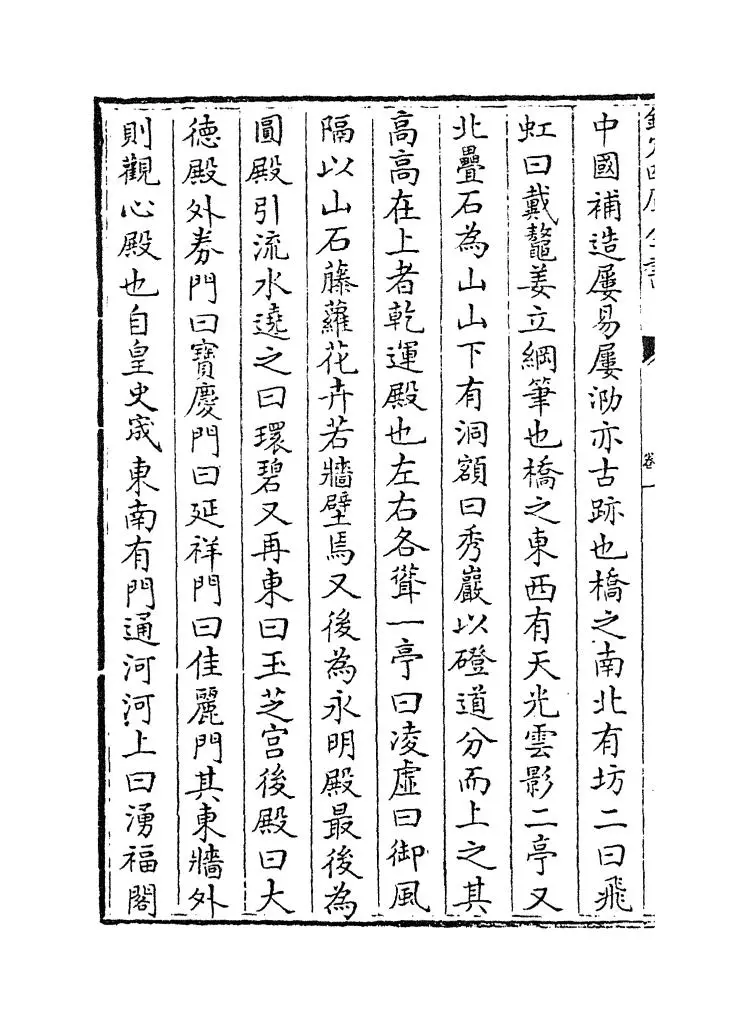 中國補造屢易屢泐亦古跡也橋之南北有坊二曰飛
虹曰戴鼇姜立綱筆也橋之東西有天光雲影二亭又
北疊石為山山下有洞額曰秀巖以磴道分而上之其
高高在上者乾運殿也左右各聳一亭曰凌虛曰御風
隔以山石藤蘿花卉若牆壁焉又後為永明殿最後為
圓殿引流水遶之曰環碧又再東曰玉芝宮後殿曰大
德殿外券門曰寶慶門曰延祥門曰佳麗門其東牆外
則觀心殿也自皇史宬東南有門通河河上曰湧福閣